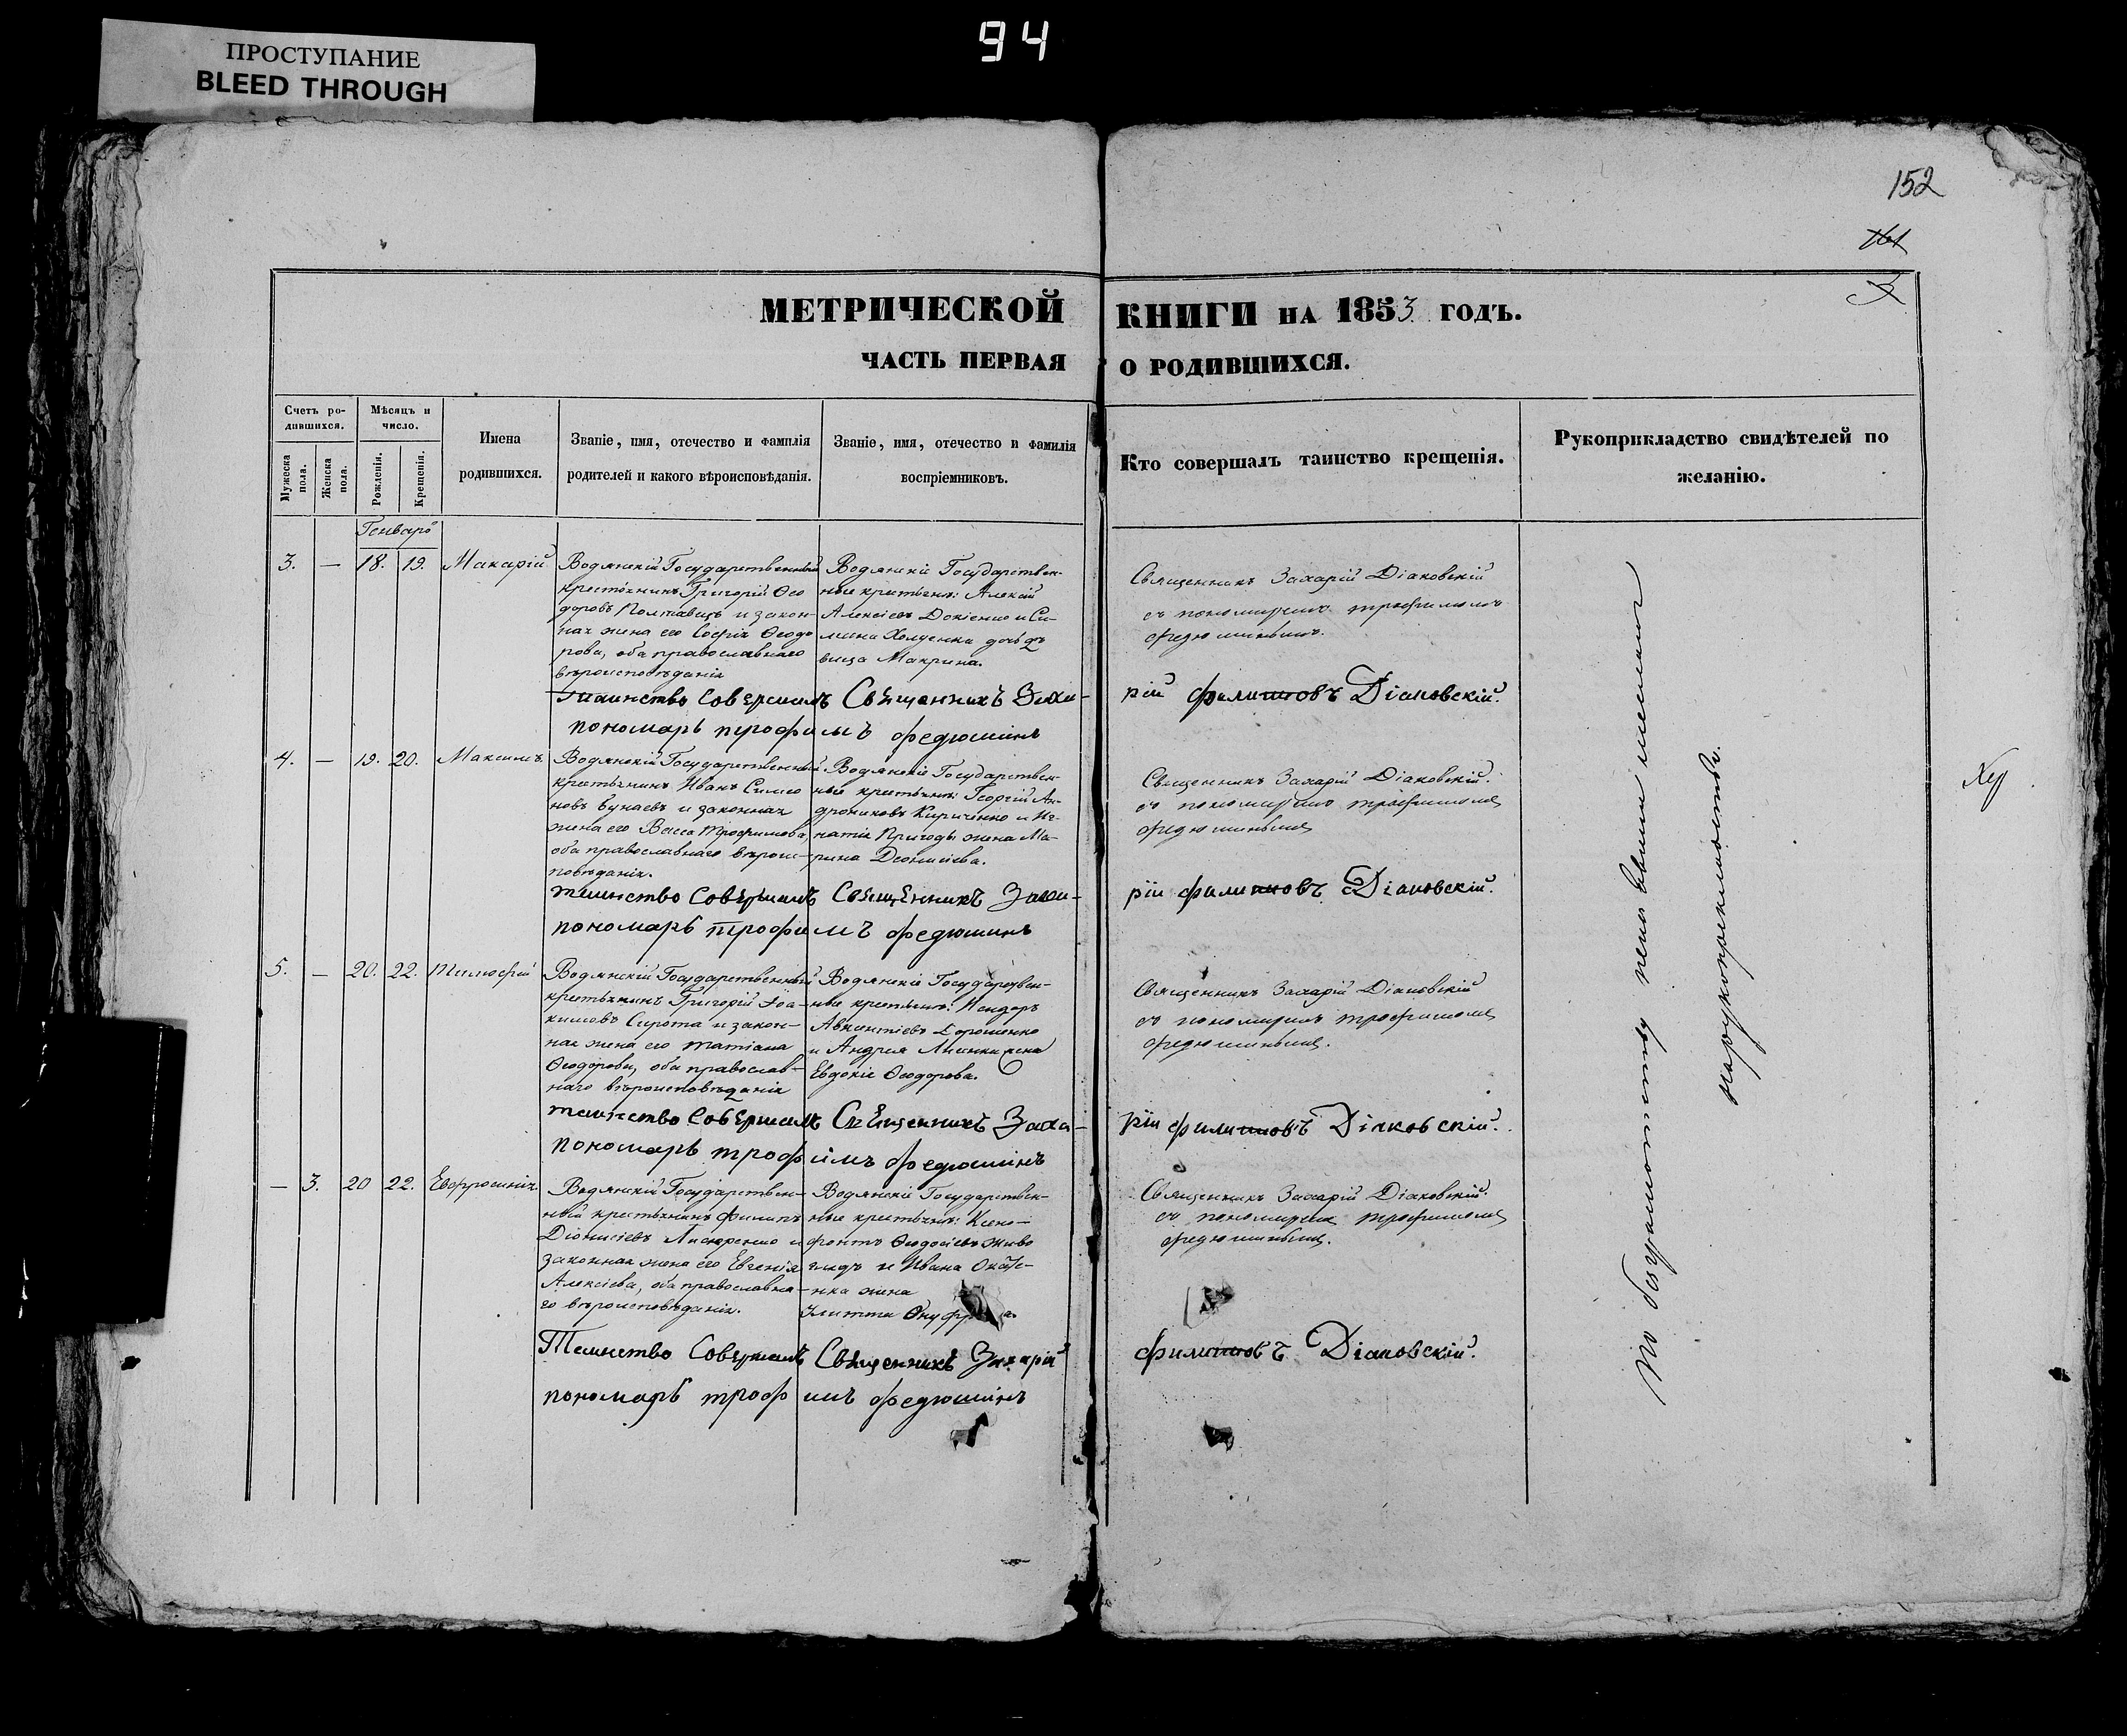 94
ПРОСТУПАНИЕ
BLEED THROUGH
152
МЕТРИЧЕСКОЙ КНИГИ НА 1853 ГОДЪ.
ЧАСТЬ ПЕРВАЯ О РОДИВШИХСЯ.
Счетъ ро-
дившихся.
Мужеска пола.
Женска пола.
Мѣсяцъ и
число.
Рожденія.
Крещенія.
Имена
родившихся.
Званіе, имя, отечество и фамилія
родителей и какого вѣроисповѣданія.
Званіе, имя, отечество и фамилія
воспріемниковъ.
Кто совершалъ таинство крещенія.
Рукоприкладство свидѣтелей по
желанію.
Генварь
3. — 18. 19. Макарій
Водянскій Государственный
крестьянинъ Григорій Ѳео
доровъ Полтавецъ и закон-
ная жена его Софія Ѳеодо
рова, оба православнаго
вѣроисповѣданія
Водянскіе Государствен-
ные крестьяне: Алексій
Алексіевъ Докіенко и Си-
вица Макрина.
Священникъ Захарій Діаковскій
съ пономаремъ Трофимомъ
Федюшинымъ.
таинство Совершилъ Священникъ Заха-
рій филиповъ Діаковскій.
пономарь трофимъ федюшинъ
4. — 19. 20. Максимъ.
Водянскій Государственный
крестьянинъ Иванъ Симео
новъ Бунаевъ и законная
жена его Васса Трофимова,
оба православнаго вѣроис-
повѣданія.
Водянскіе Государствен-
ные крестьяне: Георгій Ан-
дрониковъ Кириченко и Иг-
натія Пригоды жена Ма-
рина Деонисіева.
Священникъ Захарій Діаковскій.
съ пономаремъ Трофимомъ
Федюшинымъ
таинство Совершилъ Священникъ Заха-
рій филиповъ Діаковскій.
пономарь трофимъ федюшинъ
5. — 20. 22. Тимофей
Водянскій Государственный
крестьянинъ Григорій Іоа-
кимовъ Сирота и закон-
ная жена его Татіана
Ѳеодорова, оба православ-
наго вѣроисповѣданія
Водянскіе Государствен-
ные крестьяне: Исидоръ
Авксентіевъ Дорошенко
и Андрея жена
Евдокія Ѳеодорова.
Священникъ Захарій Діаковскій
съ пономаремъ Трофимомъ
Федюшинымъ.
таинство Совершилъ Священникъ Заха-
рій филиповъ Діяковскій.
пономарь трофимъ федюшинъ
— 3. 20 22. Евфросинія
Водянскій Государствен-
ный крестьянинъ Филипъ
Діонисіевъ и
законная жена его Евгенія
Алексіева, оба православна-
го вѣроисповѣданія.
Водянскіе Государствен-
ные крестьяне: Ксено-
фонтъ Ѳеодосіевъ Живо
и Ивана
жена
Улитта
Священникъ Захарій Діаковскій.
съ пономаремъ Трофимомъ
Федюшинымъ.
Таинство Совершилъ Священникъ Захарій
филиповъ Діаковскій.
пономарь трофимъ федюшинъ
По безграмотству